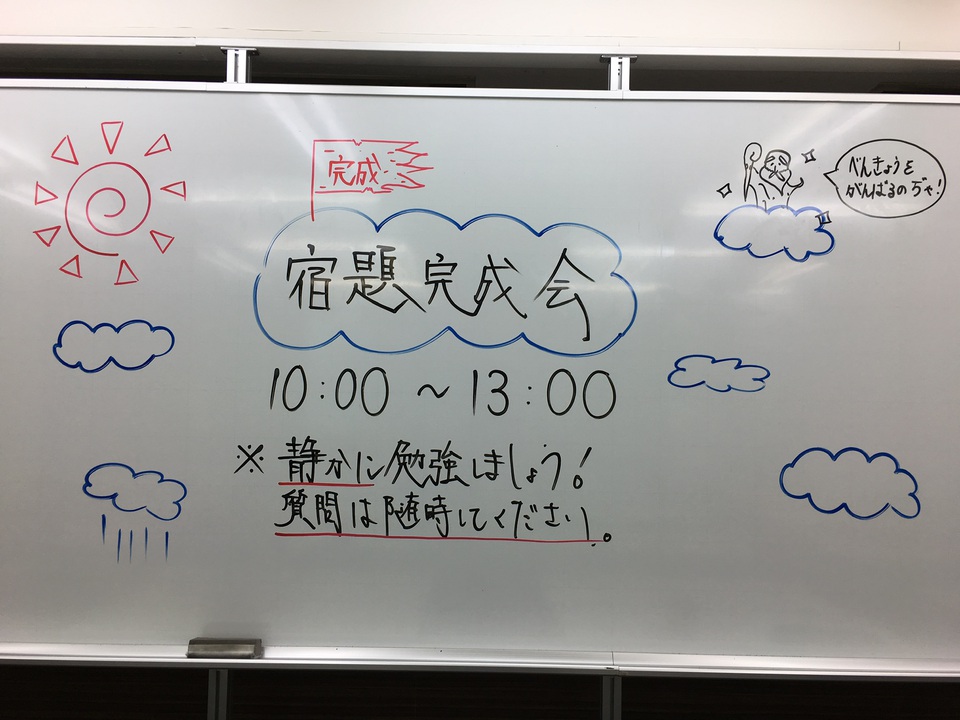 完成
宿題完成会
10:00 ~ 13:00
※ 静かに勉強しましょう!
質問は随時してください。
べんきょうを
がんばるのヂャ!